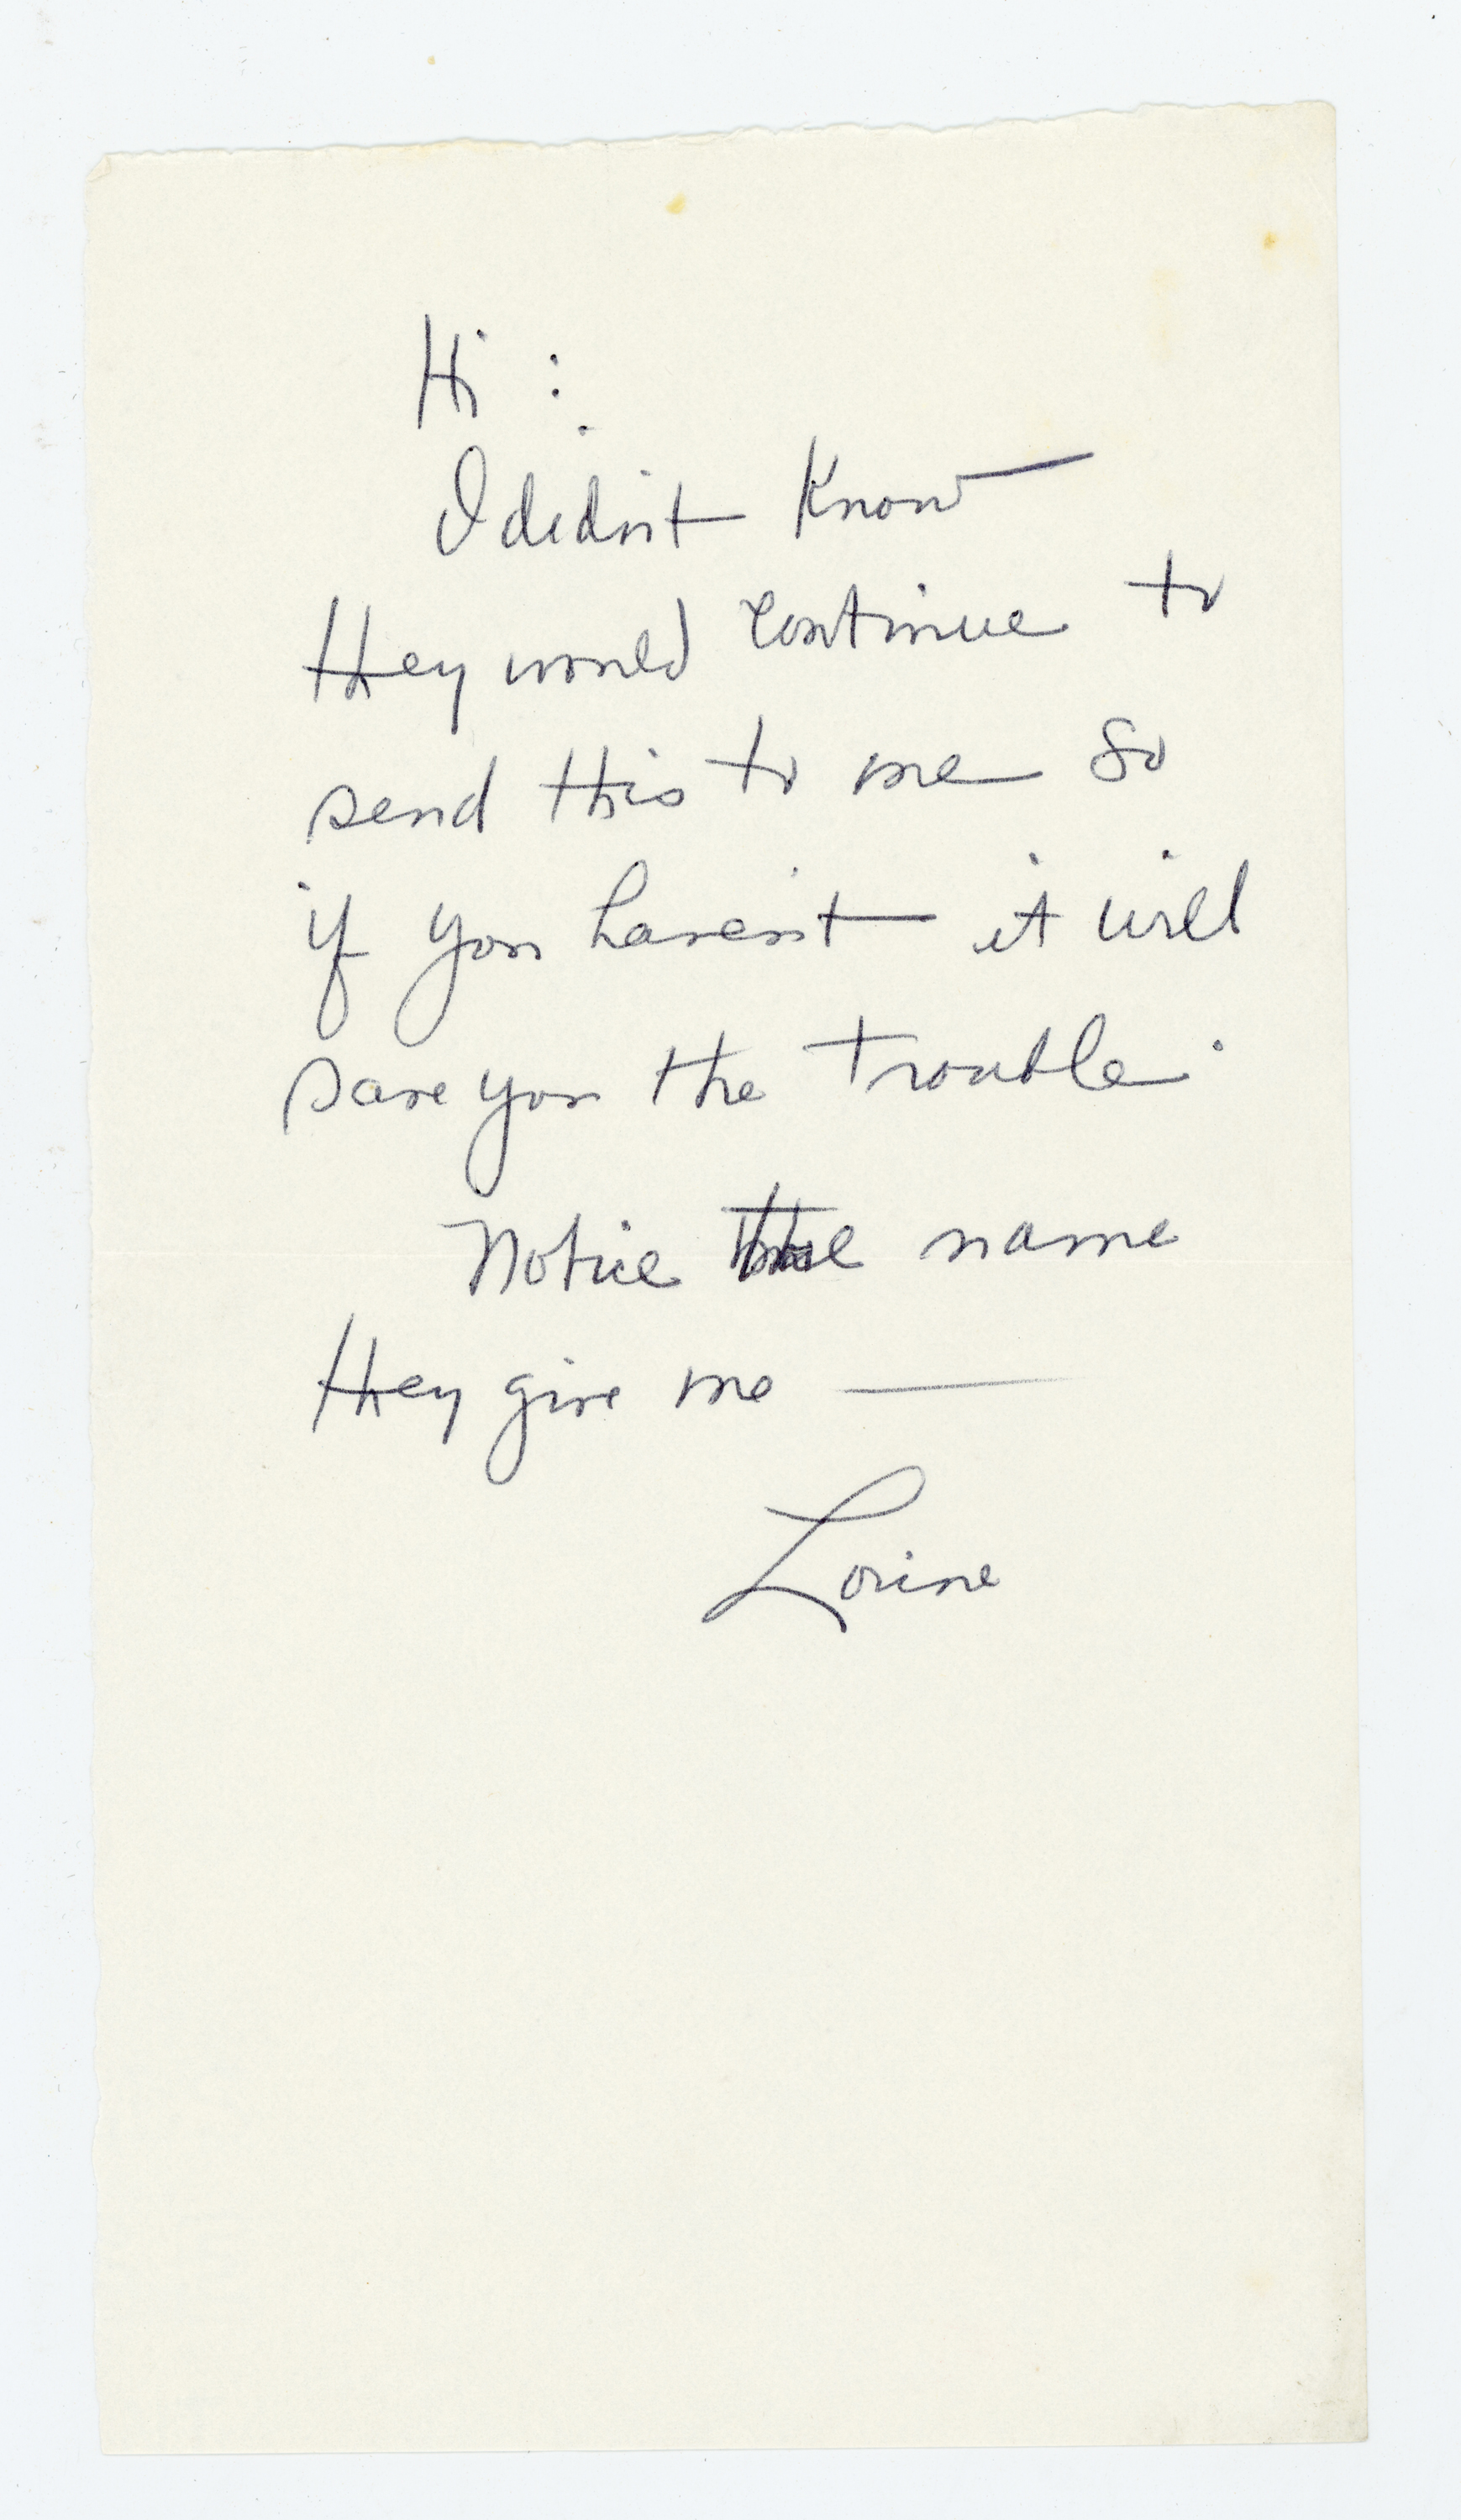 Hi :
I didn't know
they would continue to
send this to me so
if you haven't it will
save you the trouble.
Notice the name
they give me —
Lorine